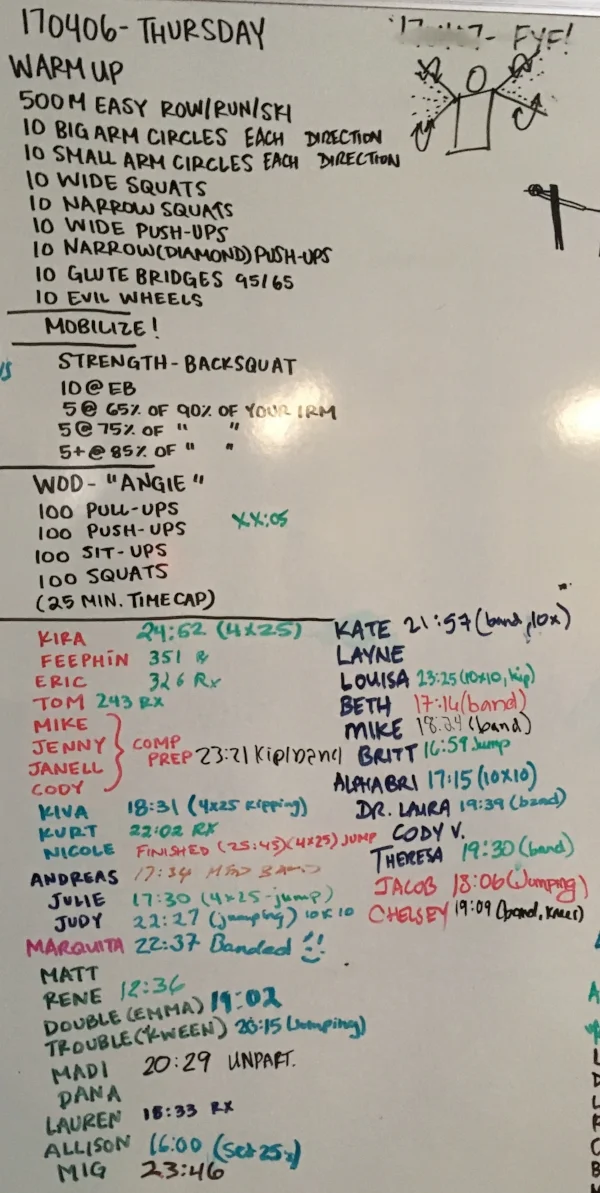 170406- THURSDAY
FYF!
WARM UP
500M EASY ROW/RUN/SKI
10 BIG ARM CIRCLES EACH DIRECTION
10 SMALL ARM CIRCLES EACH DIRECTION
10 WIDE SQUATS
10 NARROW SQUATS
10 WIDE PUSH-UPS
10 NARROW(DIAMOND) PUSH-UPS
10 GLUTE BRIDGES 95/65
10 EVIL WHEELS
MOBILIZE!
STRENGTH- BACKSQUAT
10@EB
5@ 65% OF 90% OF YOUR 1RM
5@75% OF " "
5+@85% OF " "
WOD- "ANGIE"
100 PULL-UPS
100 PUSH-UPS
XX:05
100 SIT-UPS
100 SQUATS
(25 MIN. TIME CAP)
KIRA 24:52 (4x25)
FEEPHIN 351 R
ERIC 326 Rx
TOM 243 RX
MIKE
JENNY
JANELL
CODY
COMP PREP
23:21 Kip/band
KIVA 18:31 (4x25 Kipping)
KURT 22:02 RX
NICOLE FINISHED (25:45)(4x25) JUMP
ANDREAS 17:34
JULIE 17:30 (4x25-jump)
JUDY 22:27 (jumping) 10x10
MARQUITA 22:37 Banded
MATT
RENE 12:36
DOUBLE(EMMA) 19:02
TROUBLE("KWEEN) 20:15 (Jumping)
MADI 20:29 UNPART.
DANA
LAUREN 18:33 RX
ALLISON 16:00
MIG 23:46
KATE 21:57 (band, 10x)
LAYNE
LOUISA 23:25 (10x10, kip)
BETH 17:16 (band)
MIKE 18:24 (band)
BRITT 16:59 Jump
ALPHABRI 17:15 (10x10)
DR. LAURA 19:39 (band)
CODY V.
THERESA 19:30 (band)
JACOB 18:06 (Jumping)
CHELSEY 19:09 (band, knees)